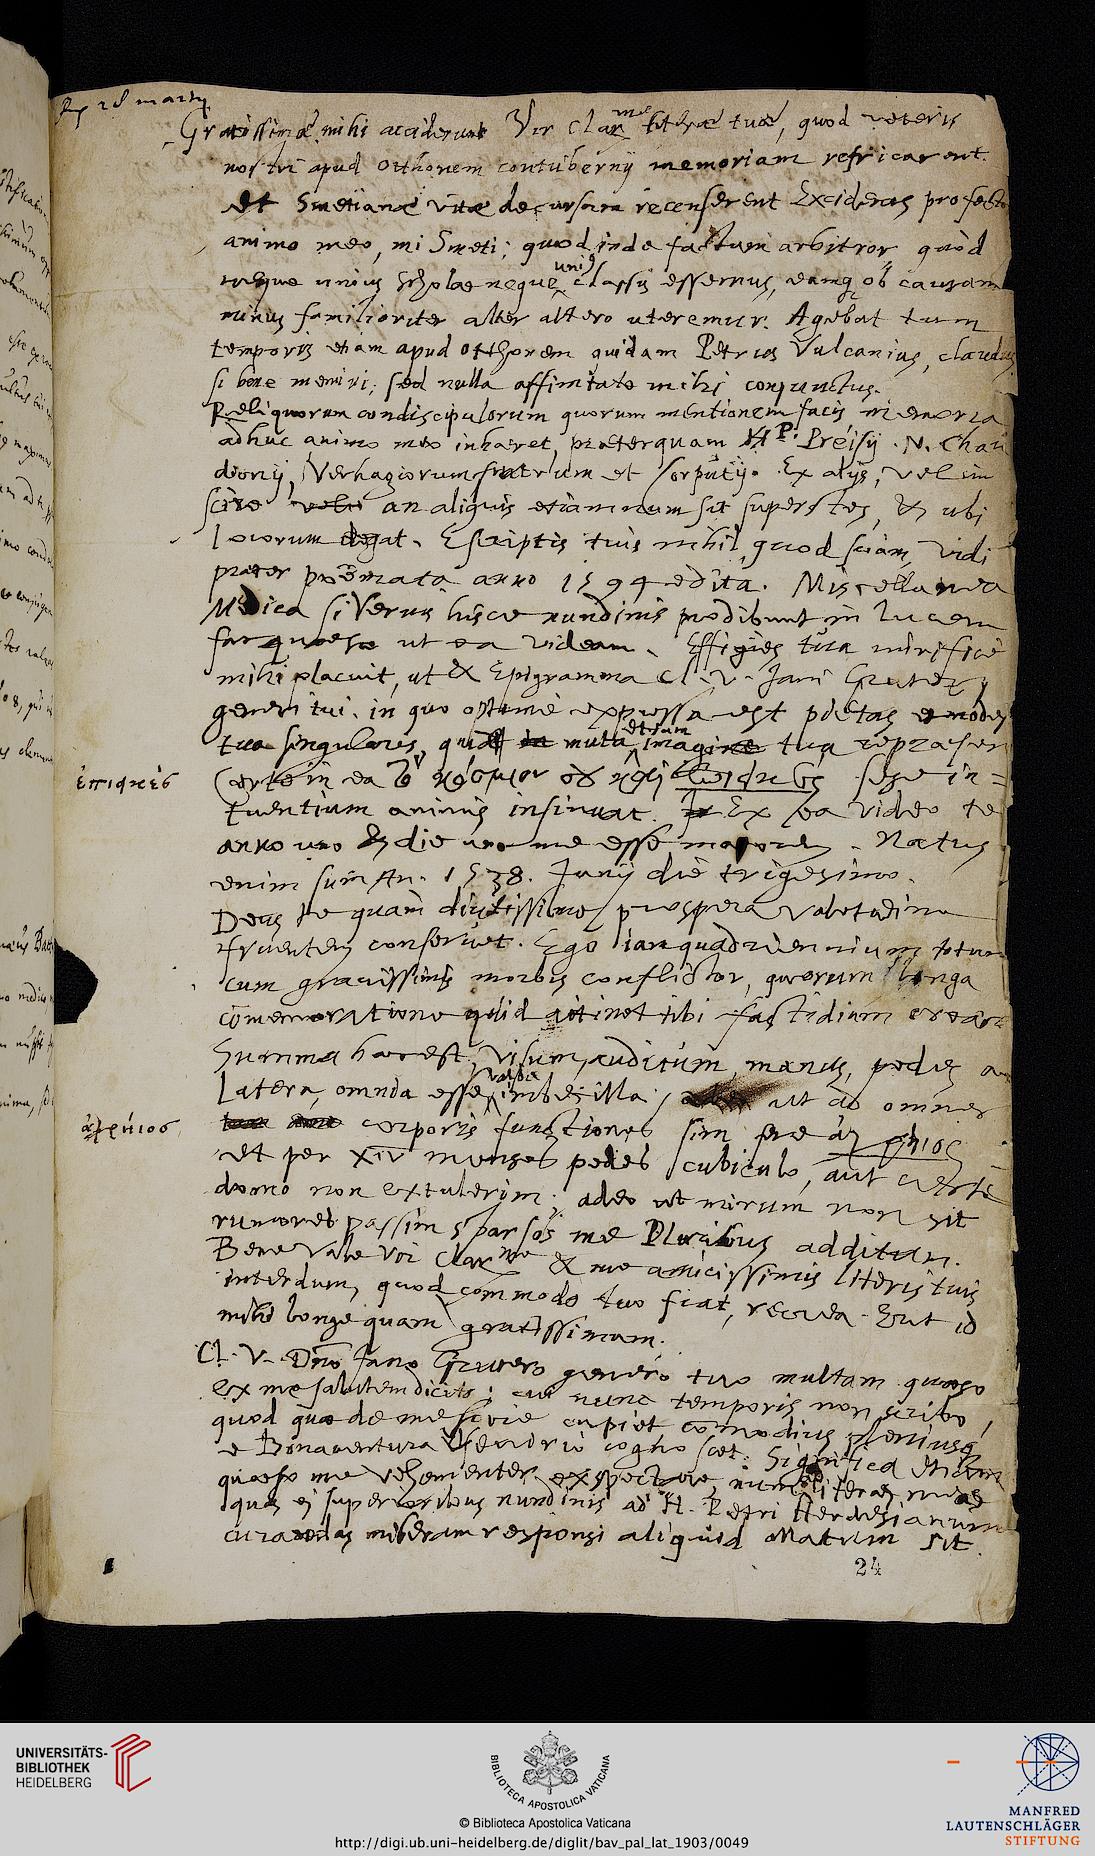 Gratissimae mihi acciderunt Vir clar.me litterae tuae, quod veteris
nostri apud Otthonem contubernij memoriam refricarent.
Et Smetianae vitae decursum recenserent Excideras profecto
animo meo, mi Smeti; quod inde factum arbitror, quod
neque unius scholae neque unius classis essemus, eamq ob causam
minus familiariter alter altero uteremur. Agebat tum
temporis etiam apud Otthonem quidam Petrus Vulcanius, claudus
si bene memini; sed nulla affinitate mihi conjunctus.
Reliquorum condiscipulorum quorum mentionem facis memoria
adhuc animo meo inhaeret, praeterquam P. Preisij. N.
Verhagiorum fratrum et Ex alijs, velim
scire an aliquis etiamnum sit superstes, & ubi
locorum degat. E scriptis tuis nihil, quod sciam, vidi
praeter poëmata anno 1594 edita. Miscellanea
Medica si Vernis hisce nundinis prodibunt in lucem
fac quaeso ut ea videam. Effigies tua mirificè
mihi placuit, ut & Epigramma Cl. V. Jani Gruteri
generi tui. in quo optime expressa est pietas & modes
tua singularis, quam multa etiam imagine tua repraesen
ἐπιεικὲς
Certe in ea τὸ κόσμιον sese in=
tuentium animis insinuat. Ex ea video te
anno uno & die uno me esse majorem. Natus
enim sum An. 1538. Junij die trigesimo.
Deus te quam diutissime prospera valetudine
fruentem conservet. Ego iam quadriennium totum
cum gravissimis morbis conflictor, quorum longa
comemoratione quid attinet tibi fastidium creare
Summa haec est, visum, auditum, manus, pedes ac
latera, omnia esse valde imbecilla; ut ad omnes
ἀχρήιος
corporis functiones sim fere ἀχρήιος
Et per XIV menses pedes cubiculo, aut certe
domo non extulerim; adeo ut mirum non sit
rumores passim sparsos me Pluribus additum.
Bene vale Vir Clar.me & me amicissimis literis tuis
interdum, quod commodo tuo fiat, recrea. Erit id
mihi longe quam gratissimum.
Cl. V. Dno Jano Grutero genero tuo multam quaeso
ex me salutem dicito; cui nunc temporis non scribo,
quod quae de me scire cupiet comodius pleniusq
e Bonaventura Vulcanio cognoscet. Significa etiam
quaeso me vehementer exspectare, num literas meas
quas ei superioribus nundinis ad H. Petri
curandas miseram responsi aliquid datum sit.
24
UNIVERSITÄTS-
BIBLIOTHEK
HEIDELBERG
BIBLIOTECA APOSTOLICA VATICANA
© Biblioteca Apostolica Vaticana
http://digi.ub.uni-heidelberg.de/diglit/bav_pal_lat_1903/0049
MANFRED
LAUTENSCHLÄGER
STIFTUNG